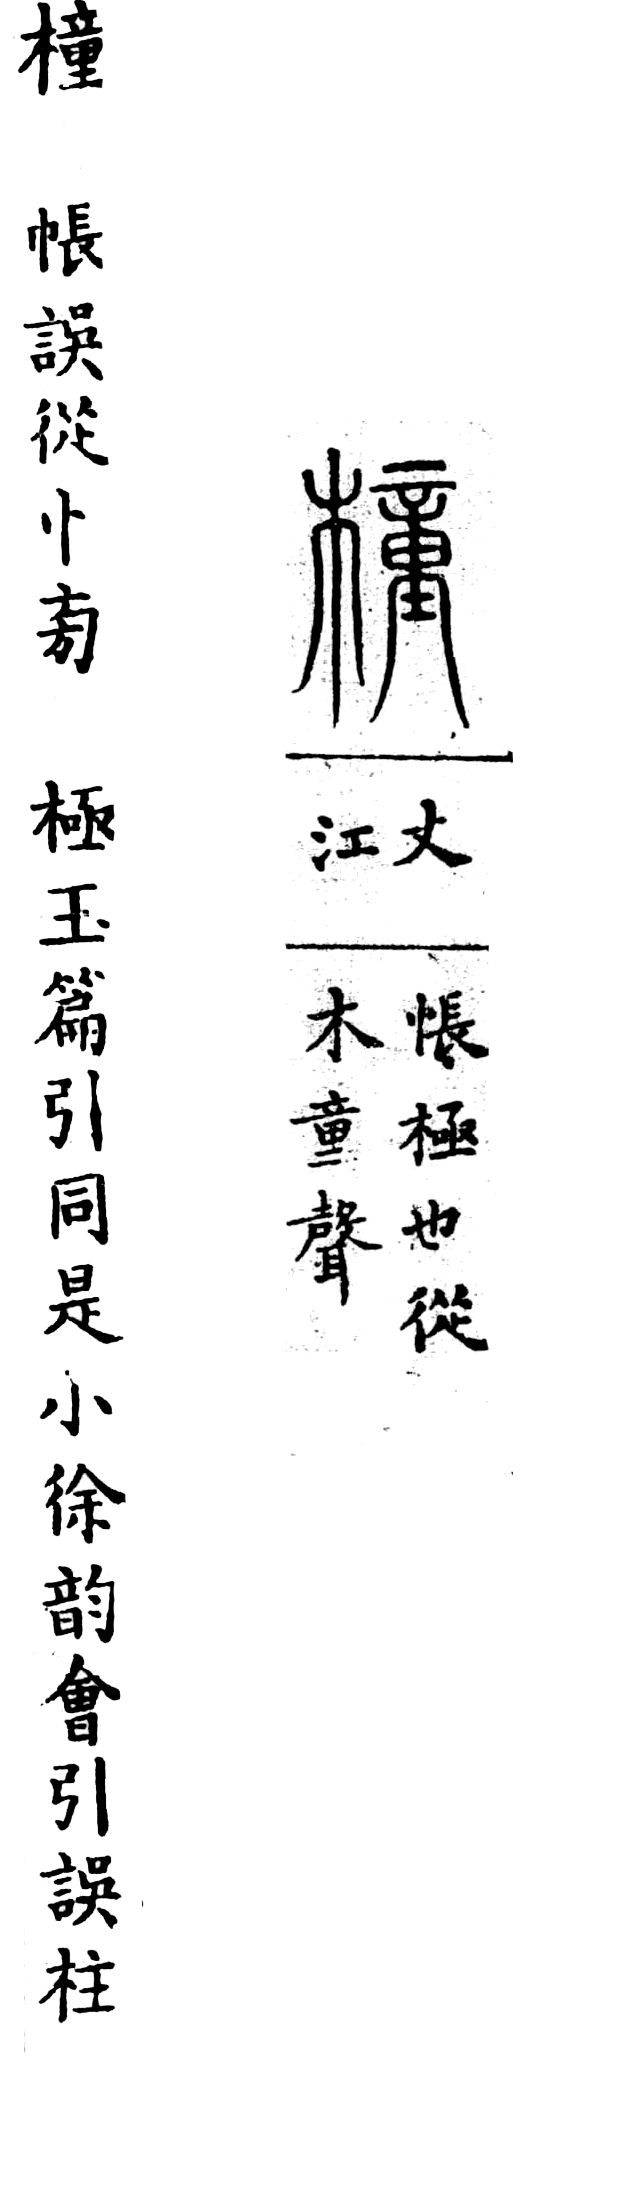 橦
丈
江
悵極也從
木童聲
橦 帳誤從忄旁 極玉篇引同是小徐韵會引誤柱